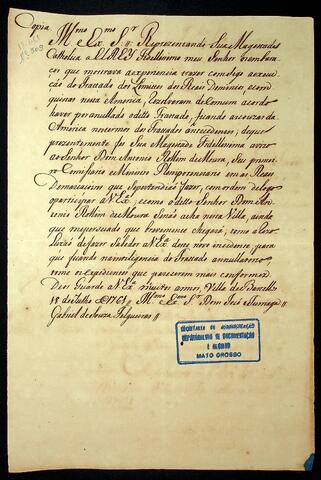 Copia
Ill.mo e Ex.mo S.r Representando Sua Magestade
Catholica a ElREY Fidellissimo meu Senhor
ces que mostrava a experiencia trazer comsigo a execu
ção do Tratado dos Limites dos Reaes Dominios e con
quistas nesta America, Rezolveram de comum acordo
haver por anullado o ditto Tratado, ficando as couzas da
America nos termos dos Tratados antecedentes; de que
prezentemente fas Sua Magestade Fidellissima avizo
ao Senhor Dom Antonio Rollim de Moura, Seu primei
ro Comissario e Menistro Plenipotenciario em as Reaes
Demarcacions que Sepertendião fazer, com ordem de logo
oparticipar a V Ex.ª; e como o ditto Senhor Dom An
tonio Rollim de Moura Senão acha nesta Villa, ainda
que me persuado que brevemente chegará, como a elle
de fazer Saber a V Ex.ª deste novo incidente, para
que ficando na inteligencia do Tratado annullatorio,
tome os expedientes que parecerem mais conformes
Deos Guarde a V Ex.ª muitos annos, Villa de Barcellos
18 de Julho de 1761 // Ill.mo e Ex.mo S.r Dom José Iturriaga //
Gabriel de Souza Felgueiras //
SECRETARIA DE ADMINISTRAÇÃO
DEPARTAMENTO DE DOCUMENTAÇÃO
E ARQUIVO
MATO GROSSO